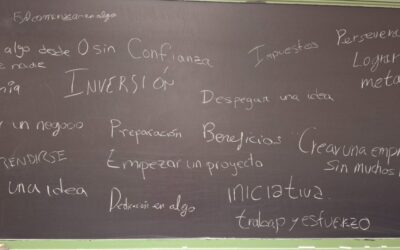 algo desde 0 sin Confianza
Impuestos
Persevera
Lograr
meta
INVERSIÓN
Despegar una idea
un negocio
Preparación
Beneficios
Crear una empre
Sin muchos
RENDIRSE
Empezar un proyecto
una idea
Dedicación en algo
iniciativa.
trabajo y esfuerzo